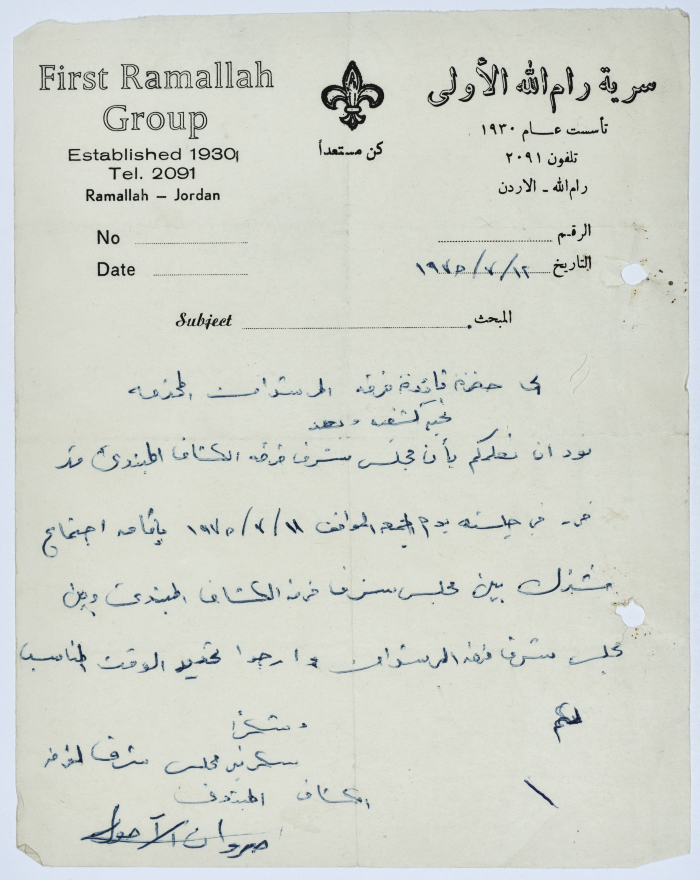 First Ramallah
Group
Established 1930
Tel. 2091
Ramallah – Jordan
سرية رام الله الأولى
تأسست عـام ١٩٣٠
تلفون ٢٠٩١
رام الله ـ الاردن
كن مستعداً
No
Date
الرقـم
التاريخ ١٩٧٥/٧/١٢
Subject المبحث
الى حضرة قائدة فرقة المرشدات المحترمه
تحيه كشفيه وبعد
نود ان نعلمكم بأن مجلس شرف فرقه الكشاف المبتدئ قد
قرر في جلسته يوم الجمعه الموافق ١٩٧٥/٧/١١ بإقامه اجتماع
مشترك بين مجلس شرف فرقه الكشاف المبتدئ وبين
مجلس شرف فرقه المرشدات وارجوا تحديد الوقت المناسب
لكم
وشكرا
سكرتير مجلس شرف الفرقه
الكشاف المبتدئ
مروان